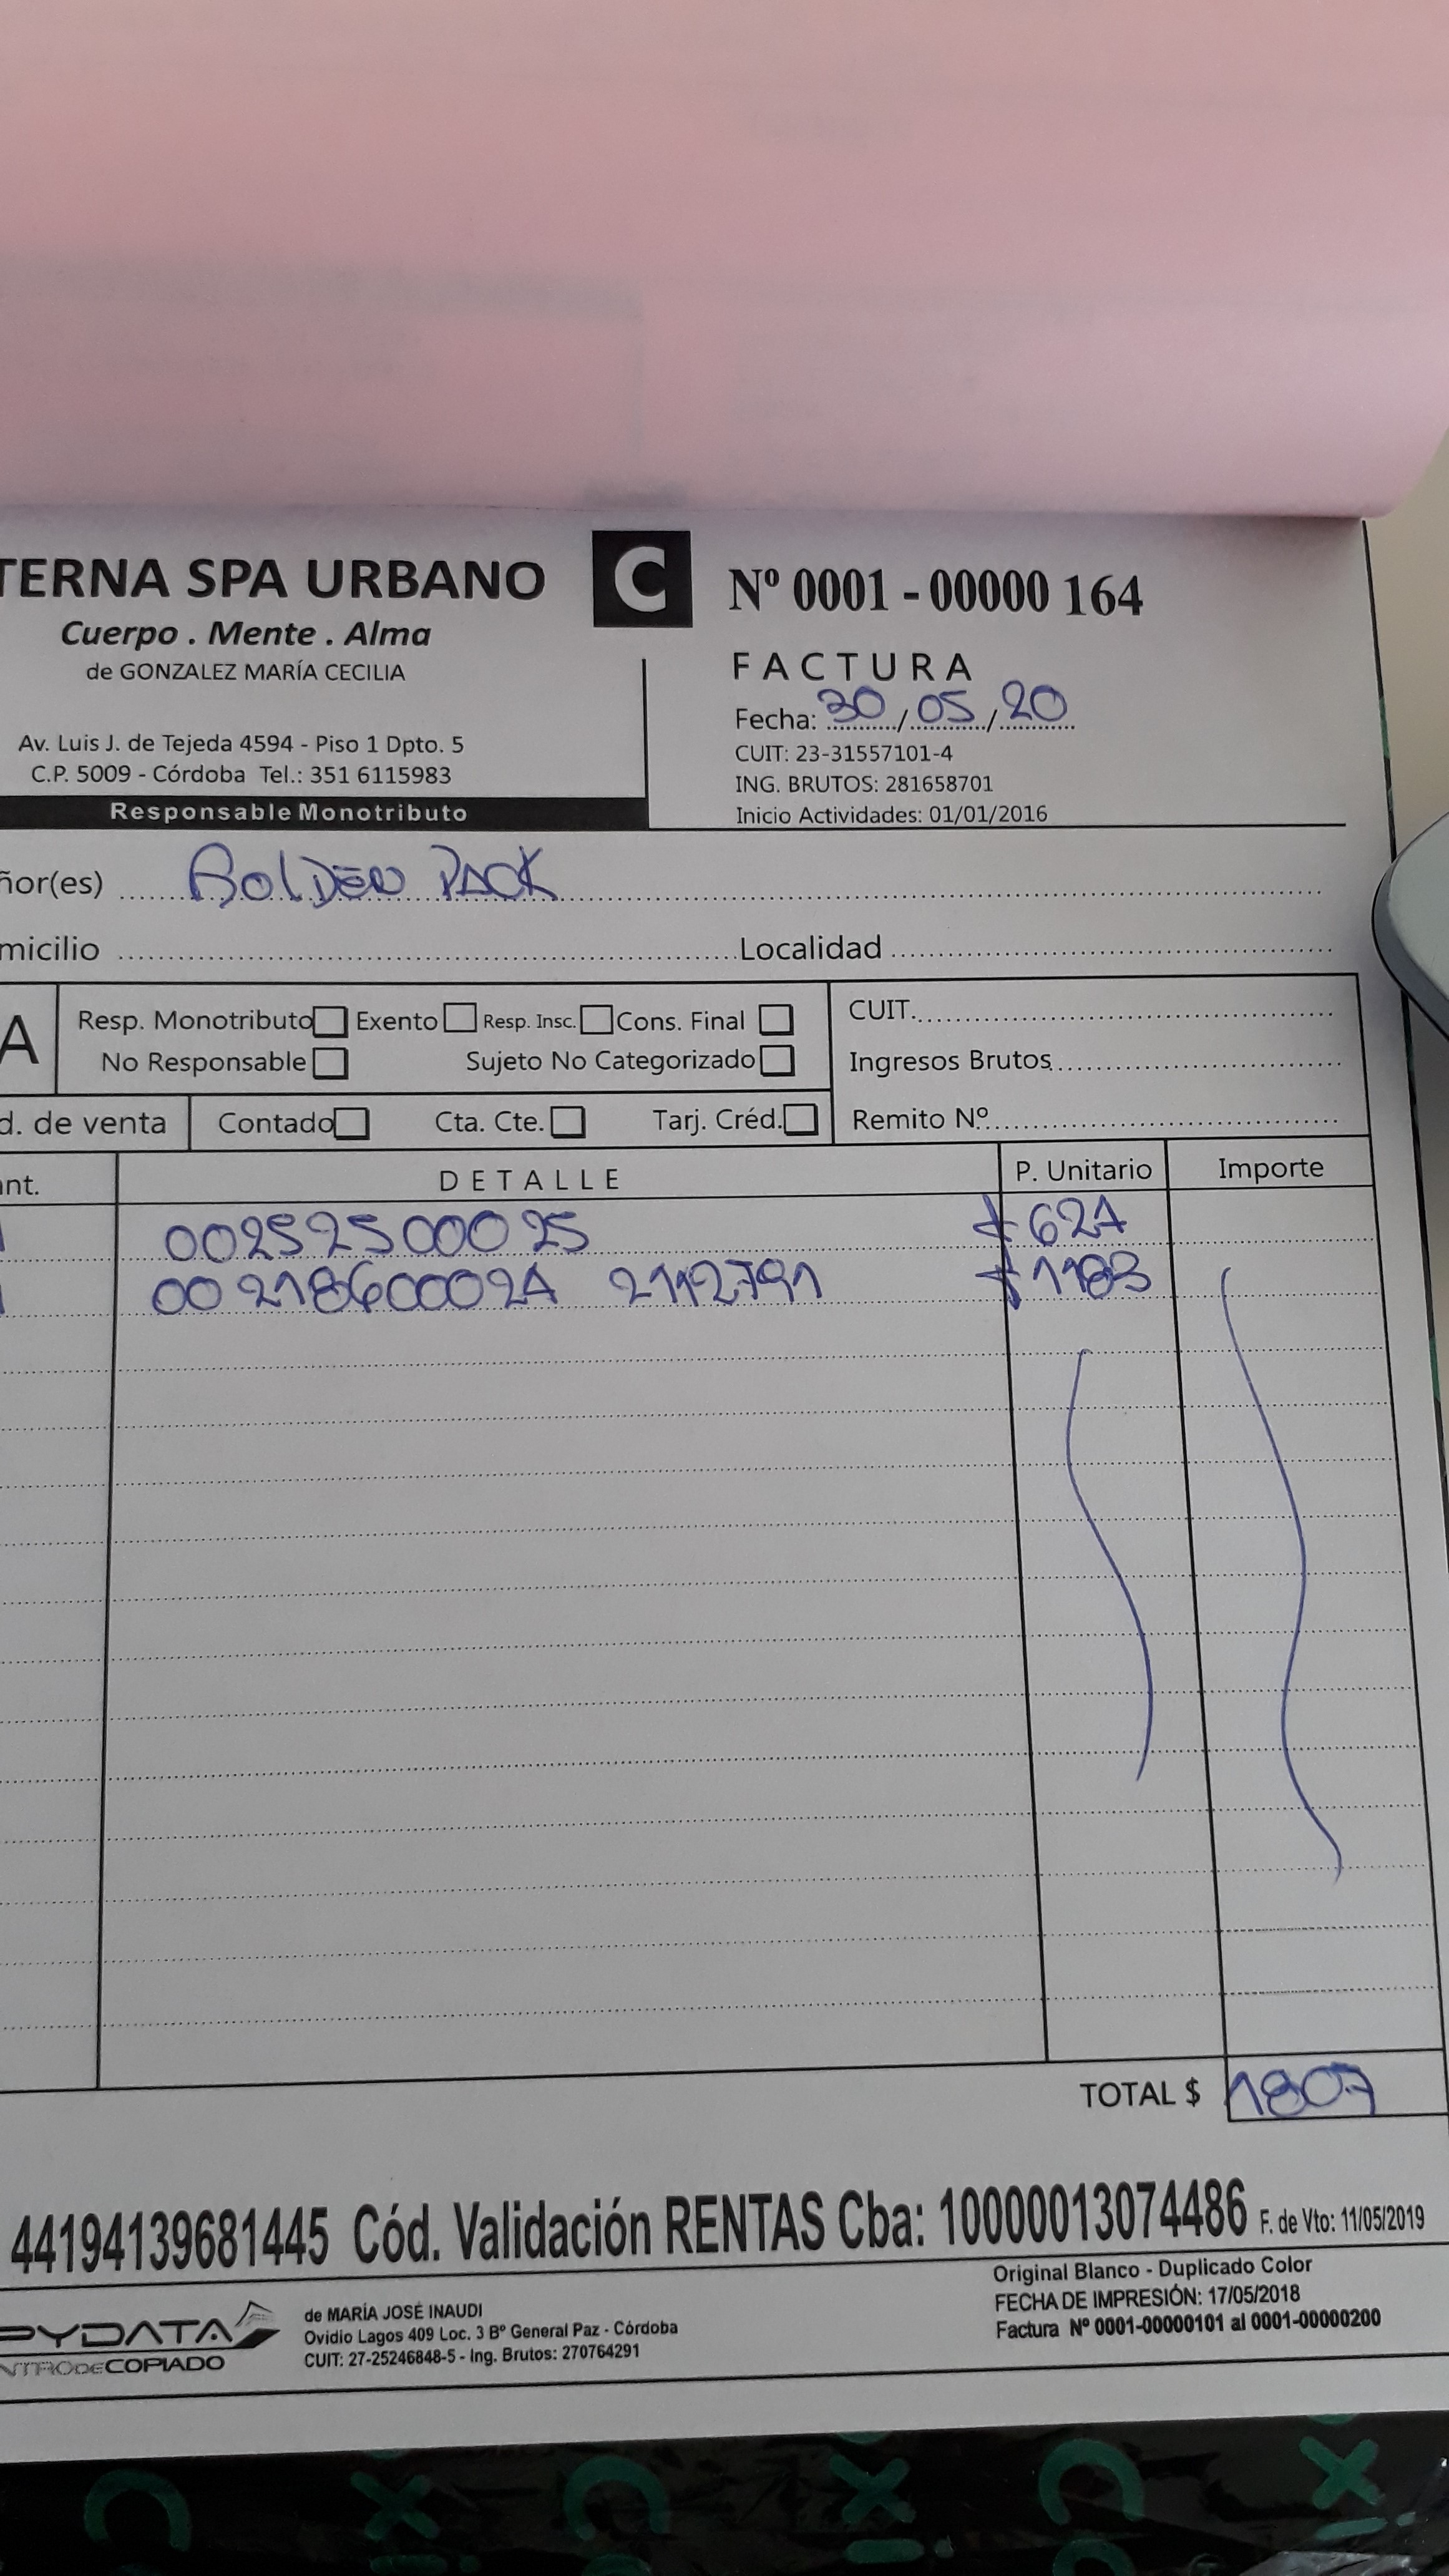 TERNA SPA URBANO
C
Nº 0001 - 00000 164
Cuerpo . Mente . Alma
de GONZALEZ MARÍA CECILIA
FACTURA
Fecha: 30/05/20
Av. Luis J. de Tejeda 4594 - Piso 1 Dpto. 5
C.P. 5009 - Córdoba Tel.: 351 6115983
CUIT: 23-31557101-4
ING. BRUTOS: 281658701
Inicio Actividades: 01/01/2016
Responsable Monotributo
ñor(es) BOLDEN PACK
micilio Localidad
A
Resp. Monotributo Exento Resp. Insc. Cons. Final
No Responsable Sujeto No Categorizado
CUIT.
Ingresos Brutos
d. de venta Contado Cta. Cte. Tarj. Créd.
Remito Nº
ant. DETALLE P. Unitario Importe
1 00252500025 $ 624
1 00218600024 2112791 $ 1183
TOTAL $ 1807
44194139681445 Cód. Validación RENTAS Cba: 10000013074486 F. de Vto: 11/05/2019
PYDATA
NTRO DE COPIADO
de MARÍA JOSÉ INAUDI
Ovidio Lagos 409 Loc. 3 Bº General Paz - Córdoba
CUIT: 27-25246848-5 - Ing. Brutos: 270764291
Original Blanco - Duplicado Color
FECHA DE IMPRESIÓN: 17/05/2018
Factura Nº 0001-00000101 al 0001-00000200